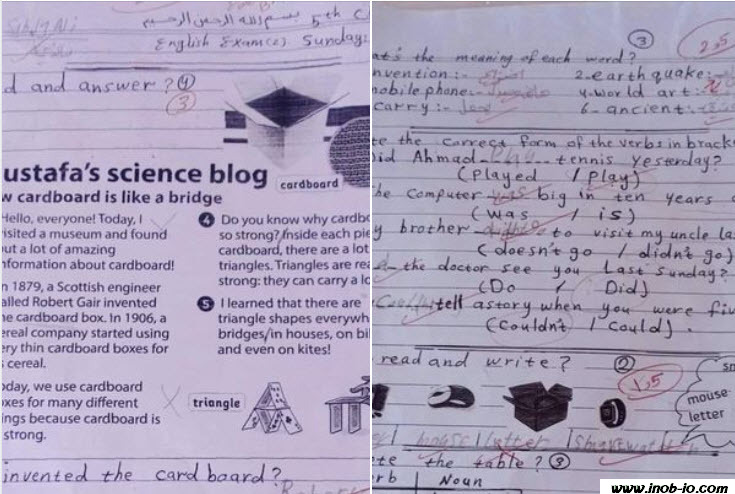 بسم الله الرحمن الرحيم 5th
English Exam(2) Sunday:
d and answer? 4
3
ustafa's science blog
cardboard
w cardboard is like a bridge
Hello, everyone! Today, I
isited a museum and found
out a lot of amazing
nformation about cardboard!
n 1879, a Scottish engineer
alled Robert Gair invented
he cardboard box. In 1906, a
ereal company started using
ery thin cardboard boxes for
s cereal.
oday, we use cardboard
oxes for many different
ings because cardboard is
strong.
4 Do you know why cardbo
so strong? Inside each pie
cardboard, there are a lot
triangles. Triangles are rea
strong: they can carry a lo
5 I learned that there are
triangle shapes everywh
bridges, in houses, on bi
and even on kites!
triangle
invented the cardboard?
3
2,5
at's the meaning of each word?
nvention:- 2-earthquake:-
mobile phone:- 4-world art:-
carry:- 6-ancient:-
te the correct form of the verbs in brack
Did Ahmad play tennis yesterday?
(Played / Play)
he computer was big in ten years
(was / is)
y brother didn't go to visit my uncle la
(doesn't go / didn't go)
the doctor see you Last Sunday?
(Do / Did)
Couldn't tell a story when you were fiv
(Couldn't / Could).
read and write? 2
1,5
sm
mouse
letter
mouse letter smartwatch
te the table? 3
rb Noun
www.inob-io.com